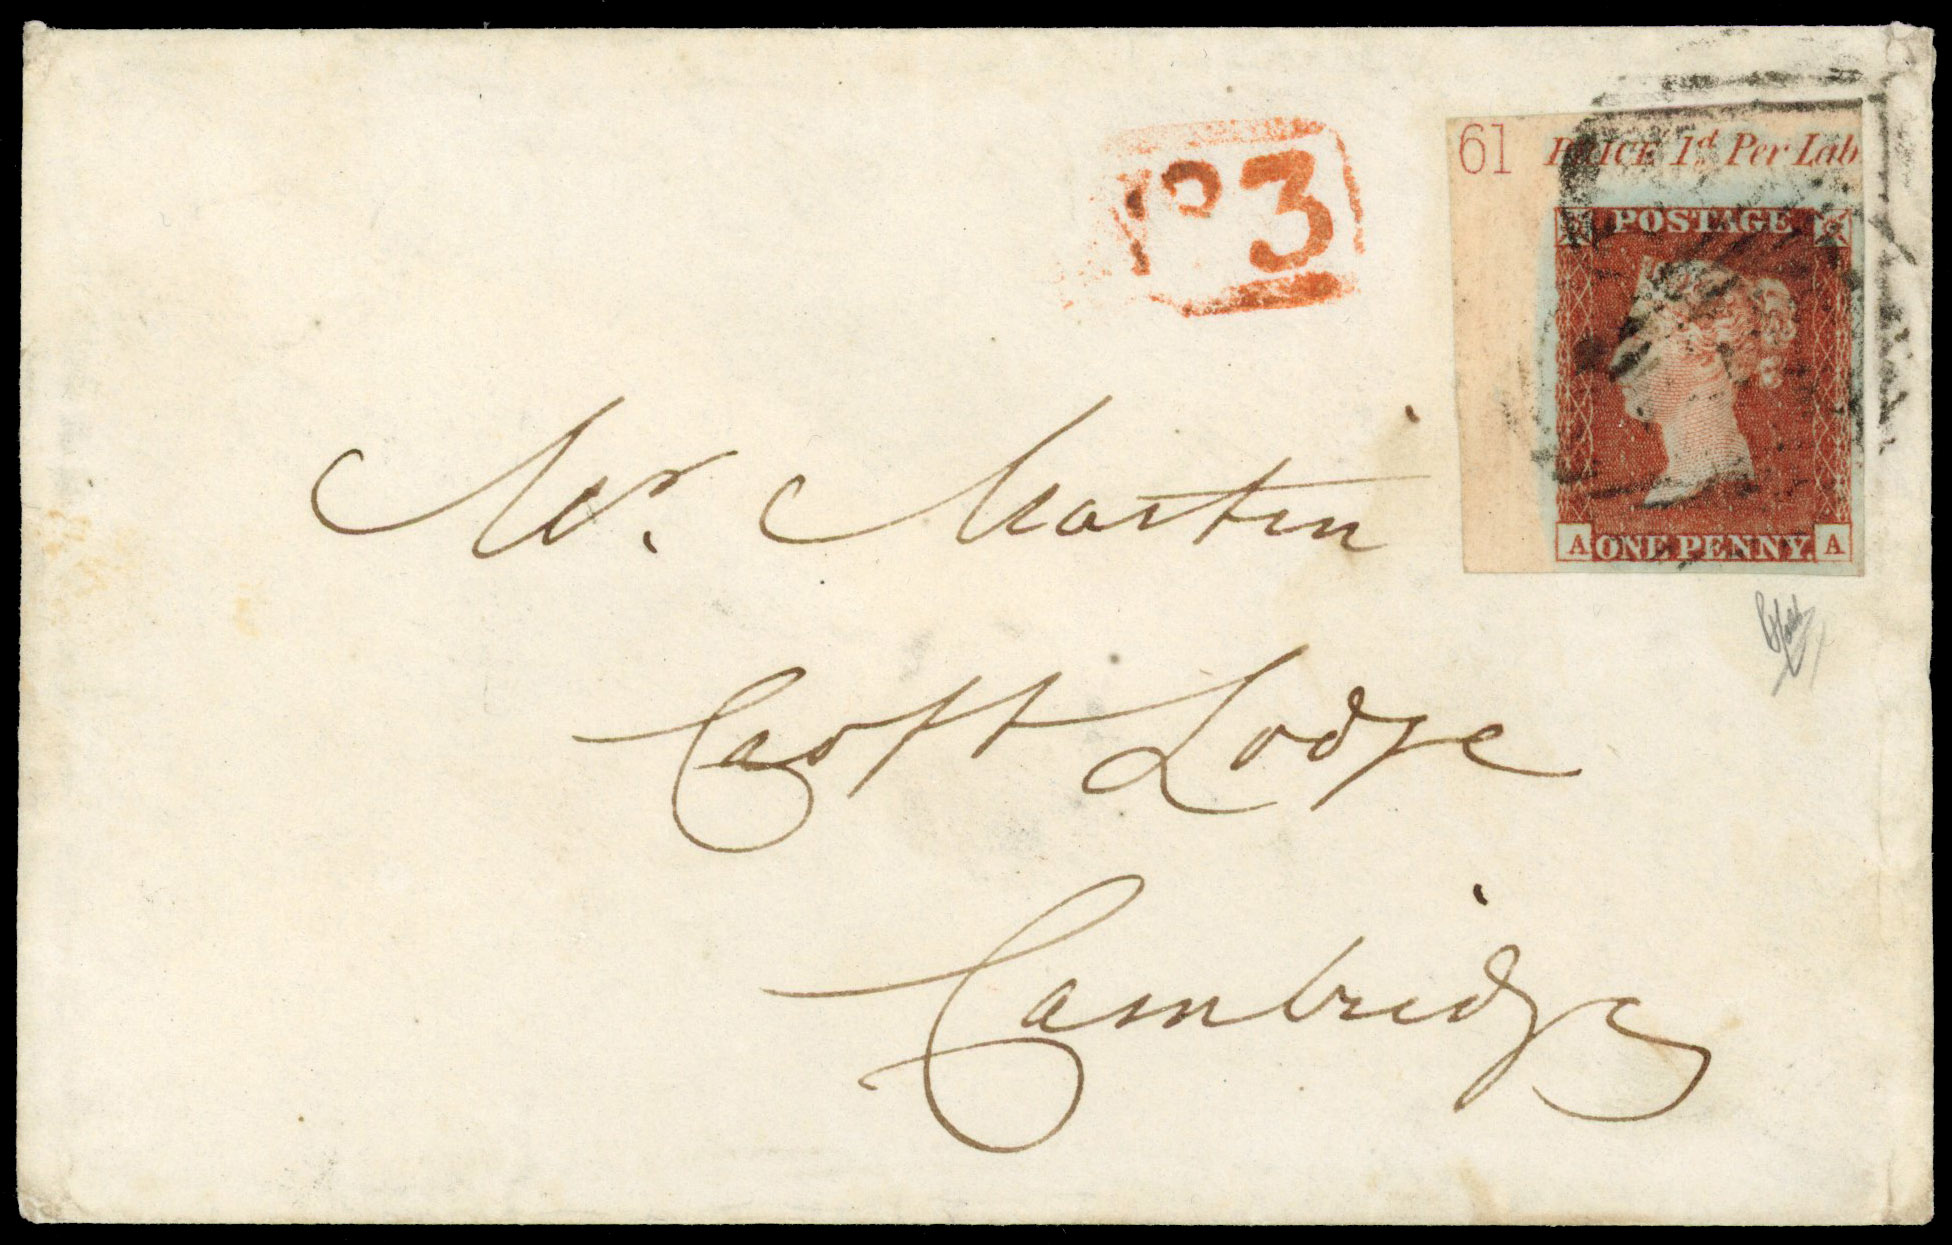 61 PRICE 1d Per Lab
No 3
POSTAGE
A ONE PENNY. A
Mr. Martin
Croft Lodge
Cambridge